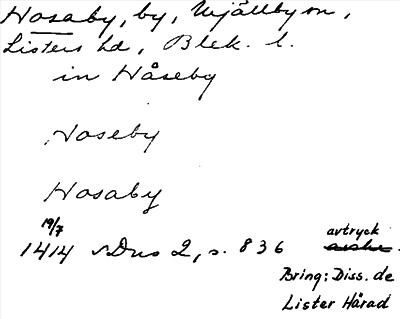 Hosaby, by, Mjällby sn,
Listers hd, Blek. l.
in Håseby
Hoseby
Hosaby
19/7
1414 SDns 2, s. 836 avtryck
Bring: Diss. de
Lister Härad